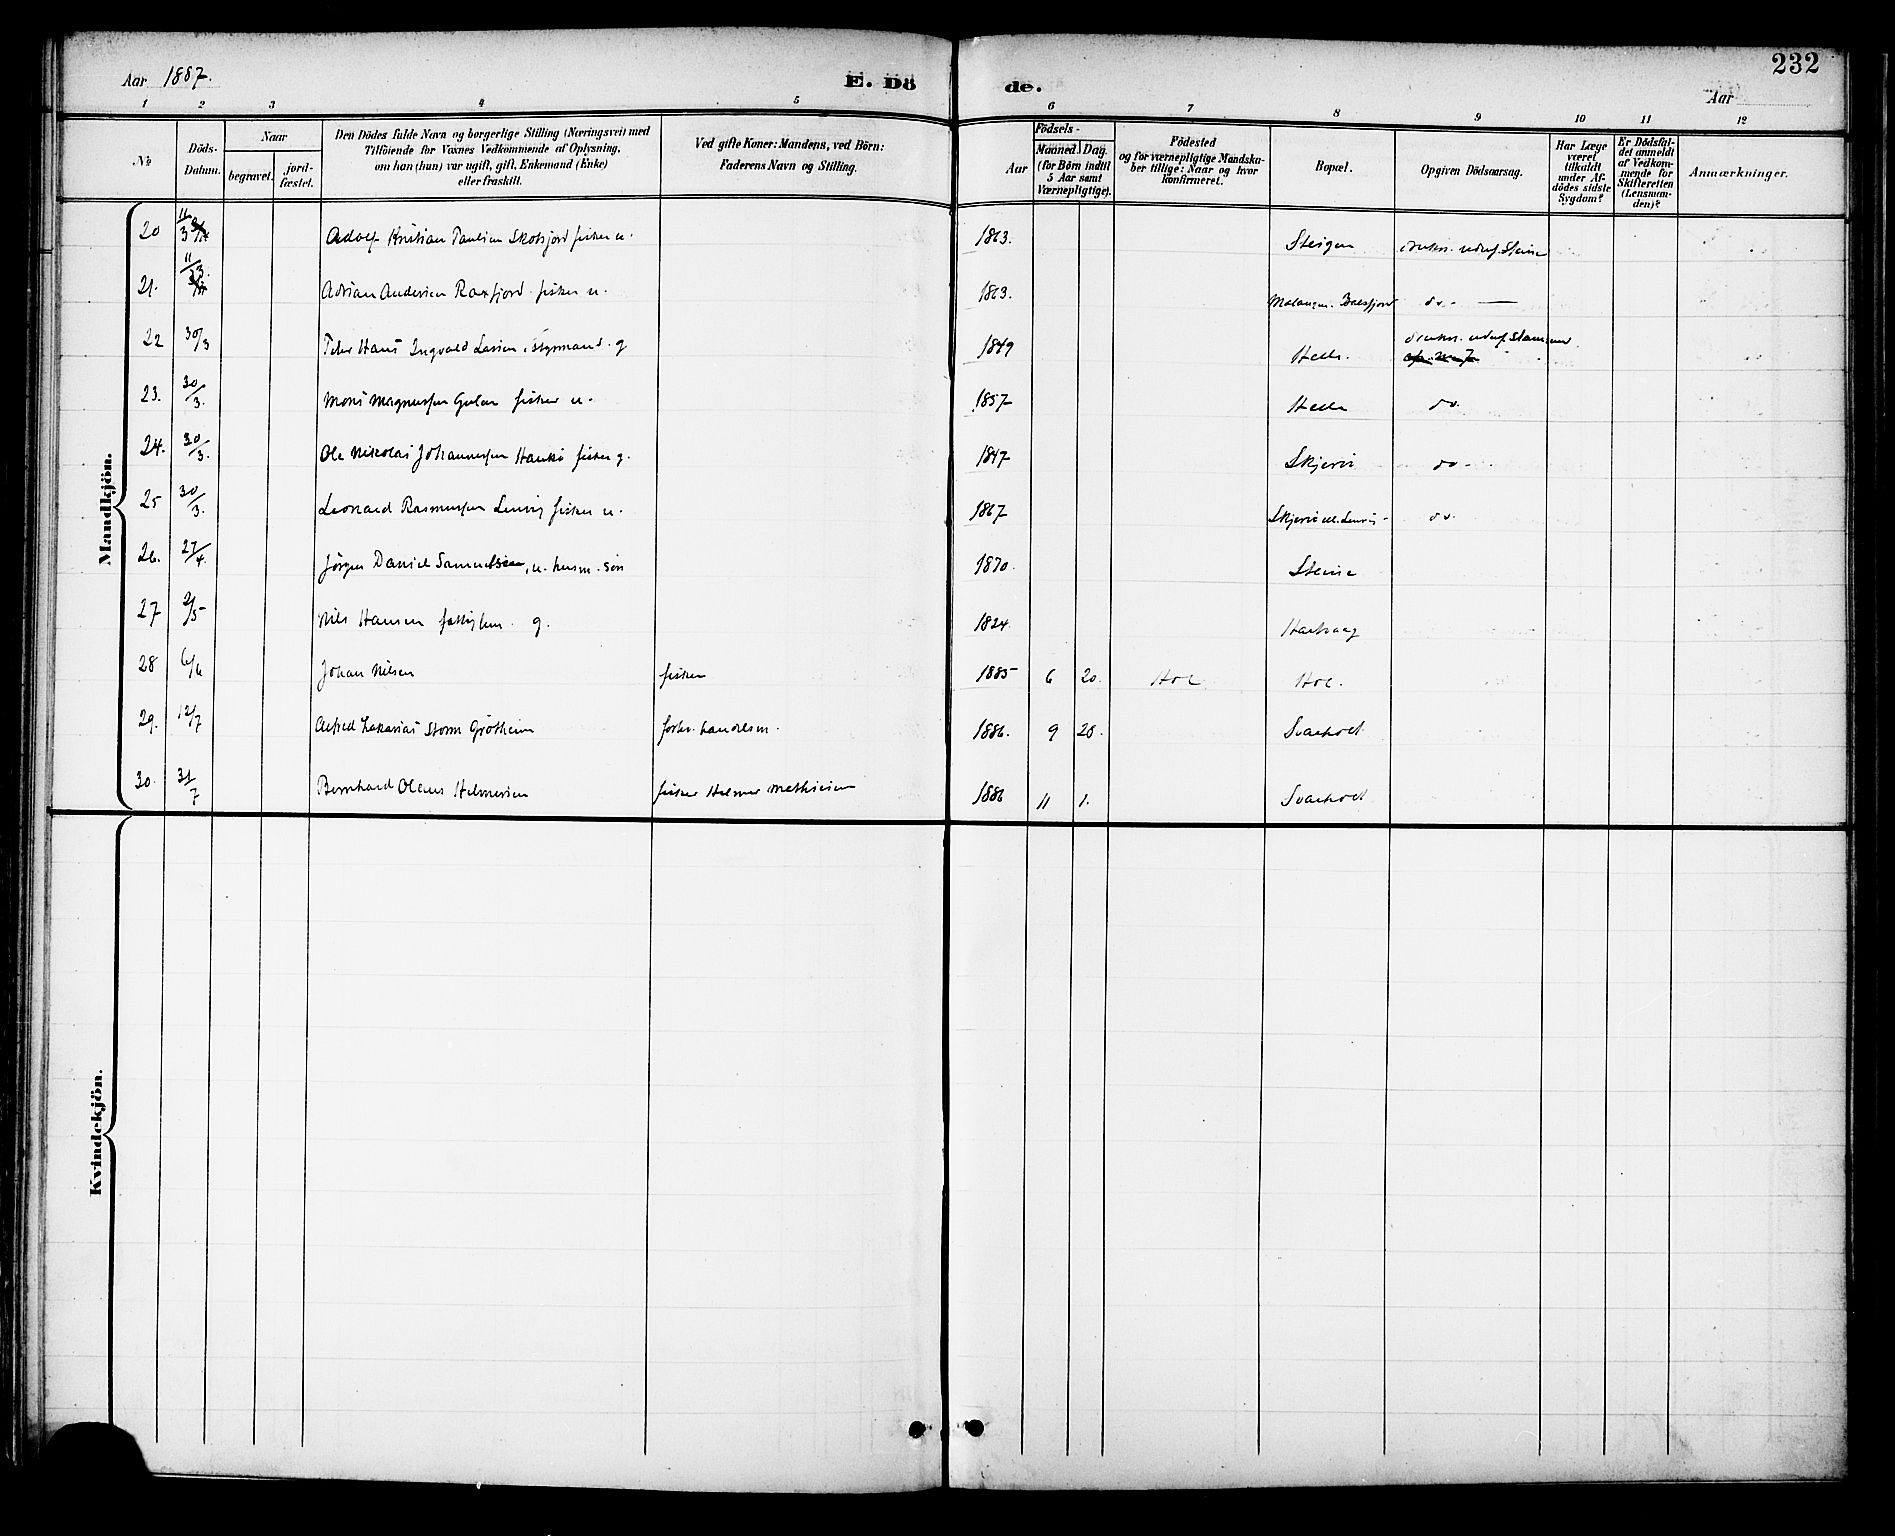 Aar 1887. E. Dö de. Aar 232
1 2 3 4 5 6 7 8 9 10 11 12
No
Döds-
Datum.
Naar
begravet.
jord-
fæstet.
Den Dödes fulde Navn og borgerlige Stilling (Næringsvei) med
Tilföiende for Voxnes Vedkommende af Oplysning,
om han (hun) var ugift, gift, Enkemand (Enke)
eller fraskilt.
Ved gifte Koner: Mandens, ved Börn:
Faderens Navn og Stilling.
Födsels-
Aar
Maaned.
Dag.
(for Börn indtil
5 Aar samt
Værnepligtige).
Födested
og for værnepligtige Mandska-
ber tillige: Naar og hvor
konfirmeret.
Bopæl.
Opgiven Dödsaarsag.
Har Læge
været
tilkaldt
under Af-
dödes sidste
Sygdom?
Er Dödsfal-
det anmeldt
af Vedkom-
mende for
Skifteretten
(Lensman-
den)?
Anmærkninger.
Mandkjön.
20 11/3 Adolf Kristian Paulsen fisker u. 1863. Steigen
21. 11/3. Adrian Andersen fisker u. 1863. Malangen. Balsfjord do. -
22 30/3 Peder Hans Ingvald Larsen g 1849 Helle.
23. 30/3. Mons Magnussen fisker u. 1857 Helle do.
24. 30/3. Ole Nikolai Johannessen fisker g. 1847 Skjervö do -
25 30/3. Leonard Rasmussen fisker u. 1867 do.
26. 27/4. Jörgen Daniel Samuelsen, u. husm. sön 1870. Steine
27 2/5 Nils Hansen g. 1824.
28 6/6 Johan Nilsen fisker 1885 6 20. Hol Hol.
29. 12/7 Alfred Zakarias Storm Grötheim forhv. handelsm. 1886. 9 20. Svarholt
30. 31/7 Bernhard Olaus Helmersen fisker Helmer Mathisen 1886 11 1. Svarholt
Kvindekjön.